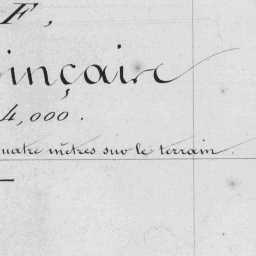 F,
inçaire
4,000.
uatre mètres sur le terrain.